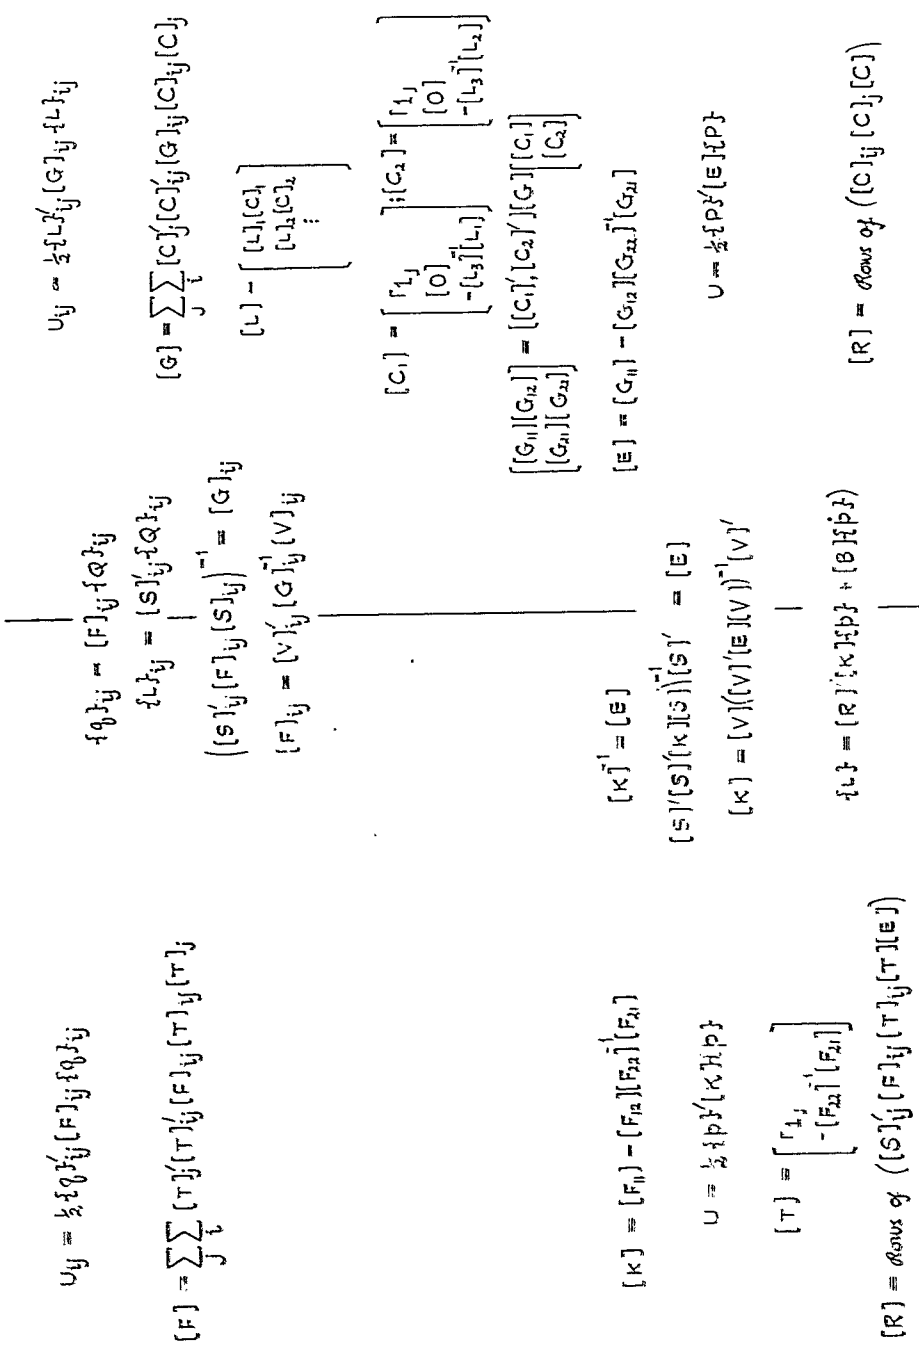 U_ij = ½{q}'_ij[F]_ij{q}_ij
[F] = ∑_j∑_i [T]'_j[T]'_ij[F]_ij[T]_ij[T]_j
[K] = [F₁₁] - [F₁₂][F₂₂]⁻¹[F₂₁]
U = ½{p}'[K]{p}
[T] = [⌈1⌋
-[F₂₂]⁻¹[F₂₁]]
[R] = Rows of ([S]'_ij[F]_ij[T]_ij[T][E])
{q}_ij = [F]_ij{Q}_ij
{L}_ij = [S]'_ij{Q}_ij
([S]'_ij[F]_ij[S]_ij)⁻¹ = [G]_ij
[F]_ij = [V]'_ij[G]⁻¹_ij[V]_ij
[K]⁻¹ = [E]
[S]'([S]'[K][S])⁻¹[S]' = [E]
[K] = [V]([V]'[E][V])⁻¹[V]'
{L} = [R]'[K]{p} + [B]{ṗ}
U_ij = ½{L}'_ij[G]_ij{L}_ij
[G] = ∑_j∑_i [C]'_j[C]'_ij[G]_ij[C]_ij[C]_j
[L] - [[L]₁[C]₁
[L]₂[C]₂
⋮]
[C₁] = [⌈1⌋
[0]
-[L₃]⁻¹[L₁]] ; [C₂] = [⌈1⌋
[0]
-[L₃]⁻¹[L₂]]
[[G₁₁][G₁₂]
[G₂₁][G₂₂]] = [[C₁]',[C₂]'][G][[C₁]
[C₂]]
[E] = [G₁₁] - [G₁₂][G₂₂]⁻¹[G₂₁]
U = ½{P}'[E]{P}
[R] = Rows of ([C]_ij[C]_j[C])